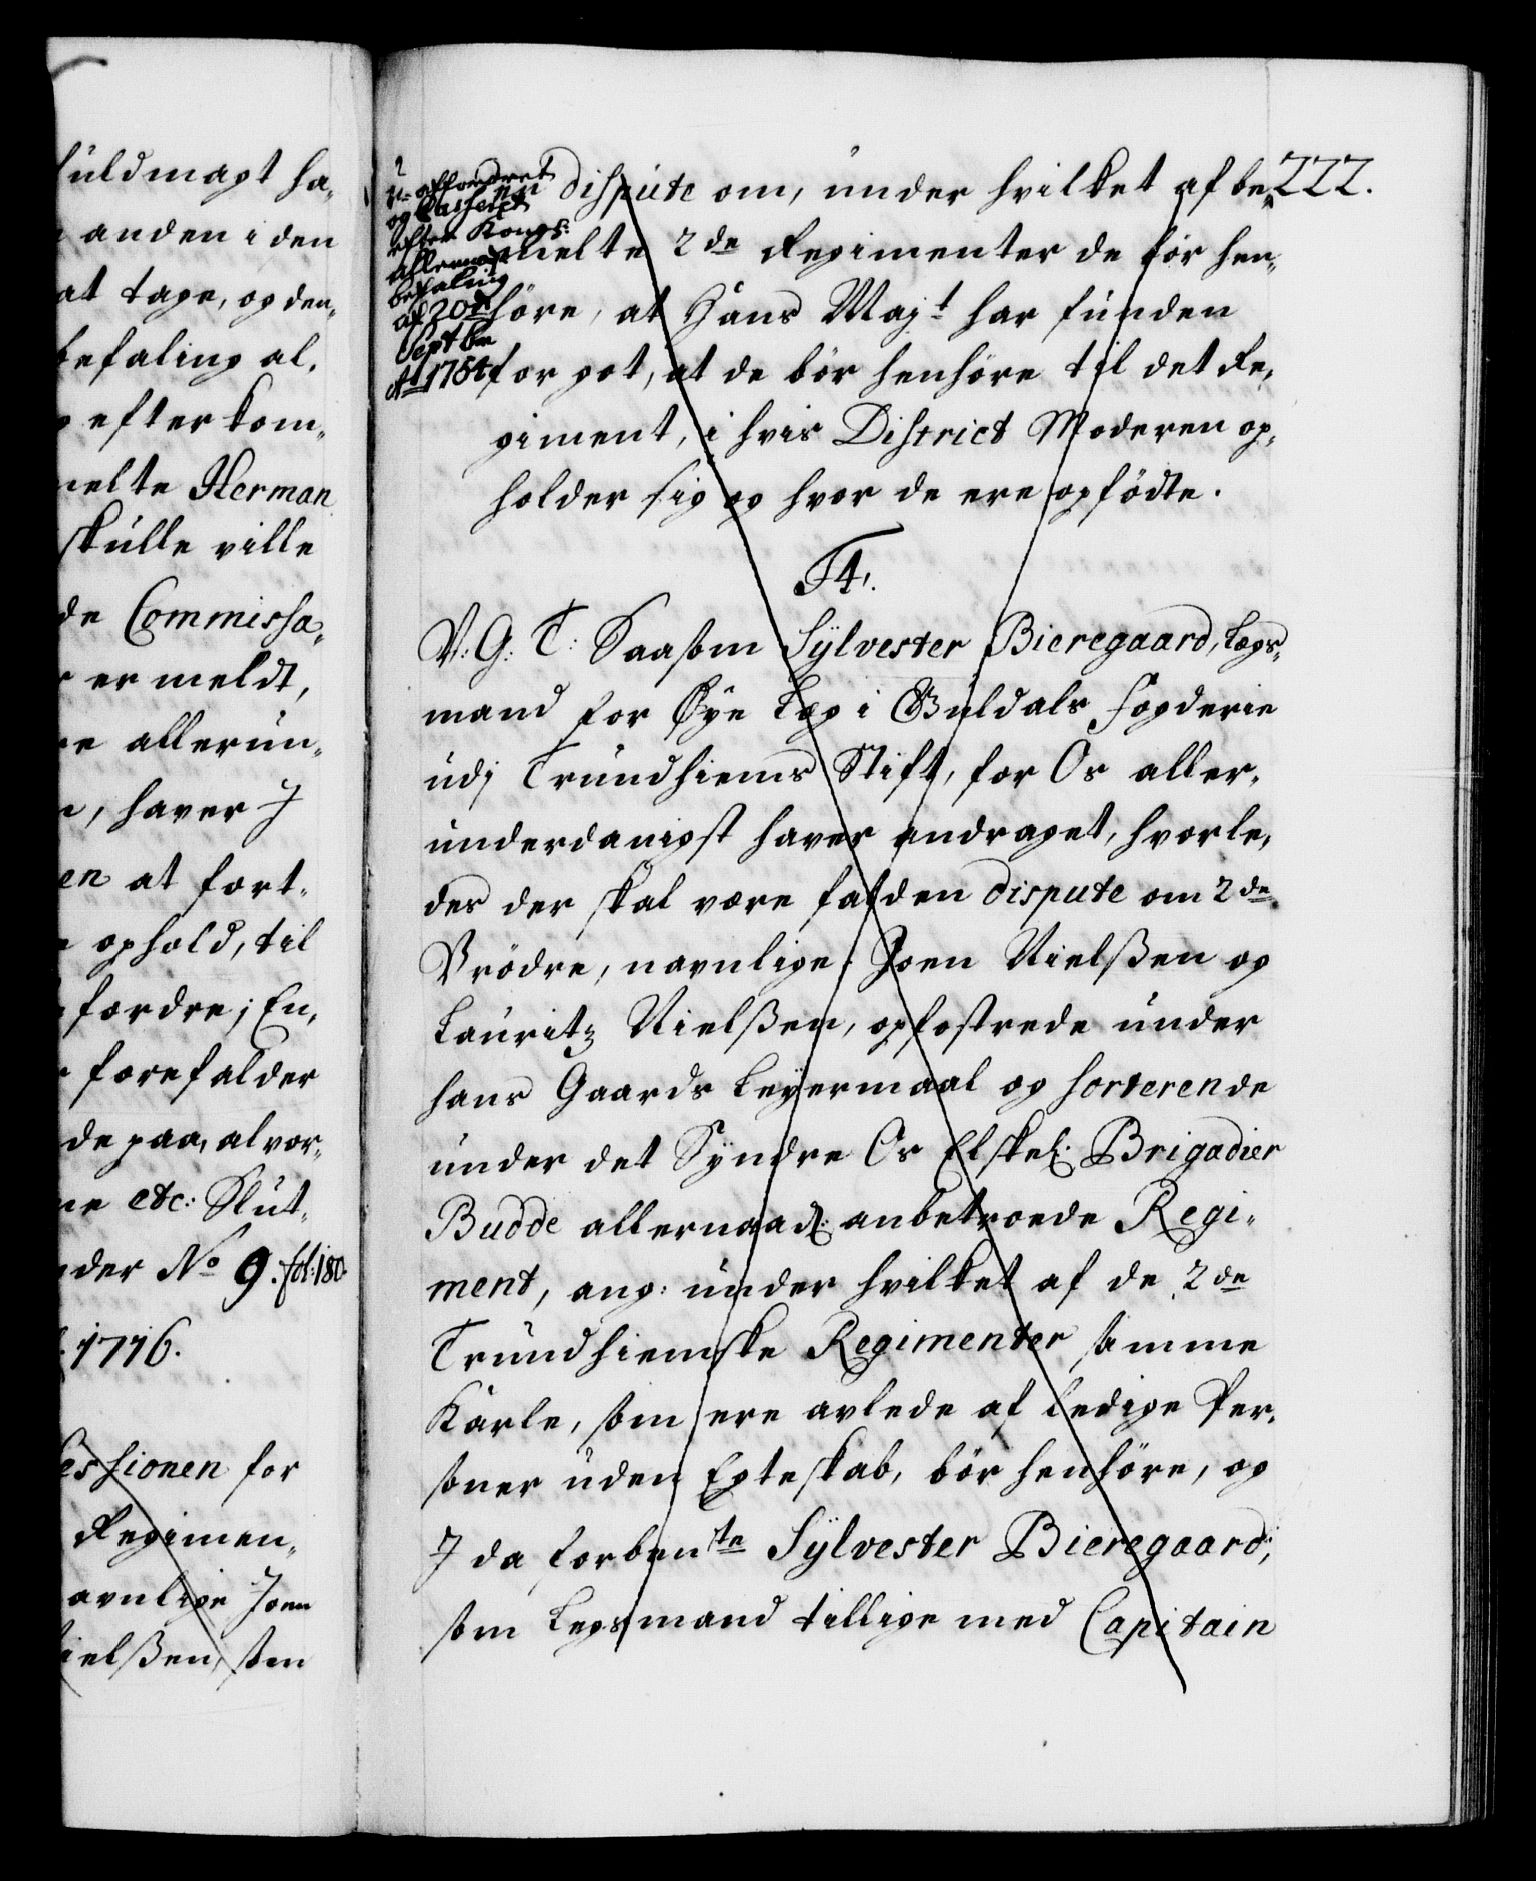 fuldmagt ha-
anden i den
at tage, og den-
befaling al-
efterkom-
melte Herman
skulle ville
de Commissa-
er meldt,
allerun-
, haver I
en at fort-
ophold, til
fordre; En-
forefalder
de paa, alvor-
etc: Slut-
der No 9. fol: 180.
1716.
essionen for
Regimen-
avnlige Joen
ielßen, som
222.
og Casseret
efter Kongs:
allernaad
befaling
af 20de
Septbr
Ao 1754
dispute om, under hvilket af be-
melte 2de Regimenter de bör hen-
höre, at Hans Majt har funden
for got, at de bör henhöre til det Re-
giment, i hvis District Moderen op-
holder sig og hvor de ere opfödte.
F4.
V: G: T: Saasom Sÿlvester Bieregaard, Legs-
mand for Øÿe Leg i Guldals Fogderie
udj Trundhiems Stift, for Os aller-
underdanigst haver andraget, hvorle-
des der skal være falden dispute om 2de
Brödre, navnlige: Joen Nielßen og
Lauritz Nielßen, opfostrede under
hans Gaards Leÿermaal og sorterende
under det Syndre Os Elskel: Brigadier
Budde allernaad: anbetroede Regi-
ment, ang: under hvilket af de 2de
Trundhiemske Regimenter samme
Karle, som ere avlede af ledige Per-
soner uden Egteskab, bör henhöre, og
I da forbente Sÿlvester Bieregaard,
som Legsmand tillige med Capitain